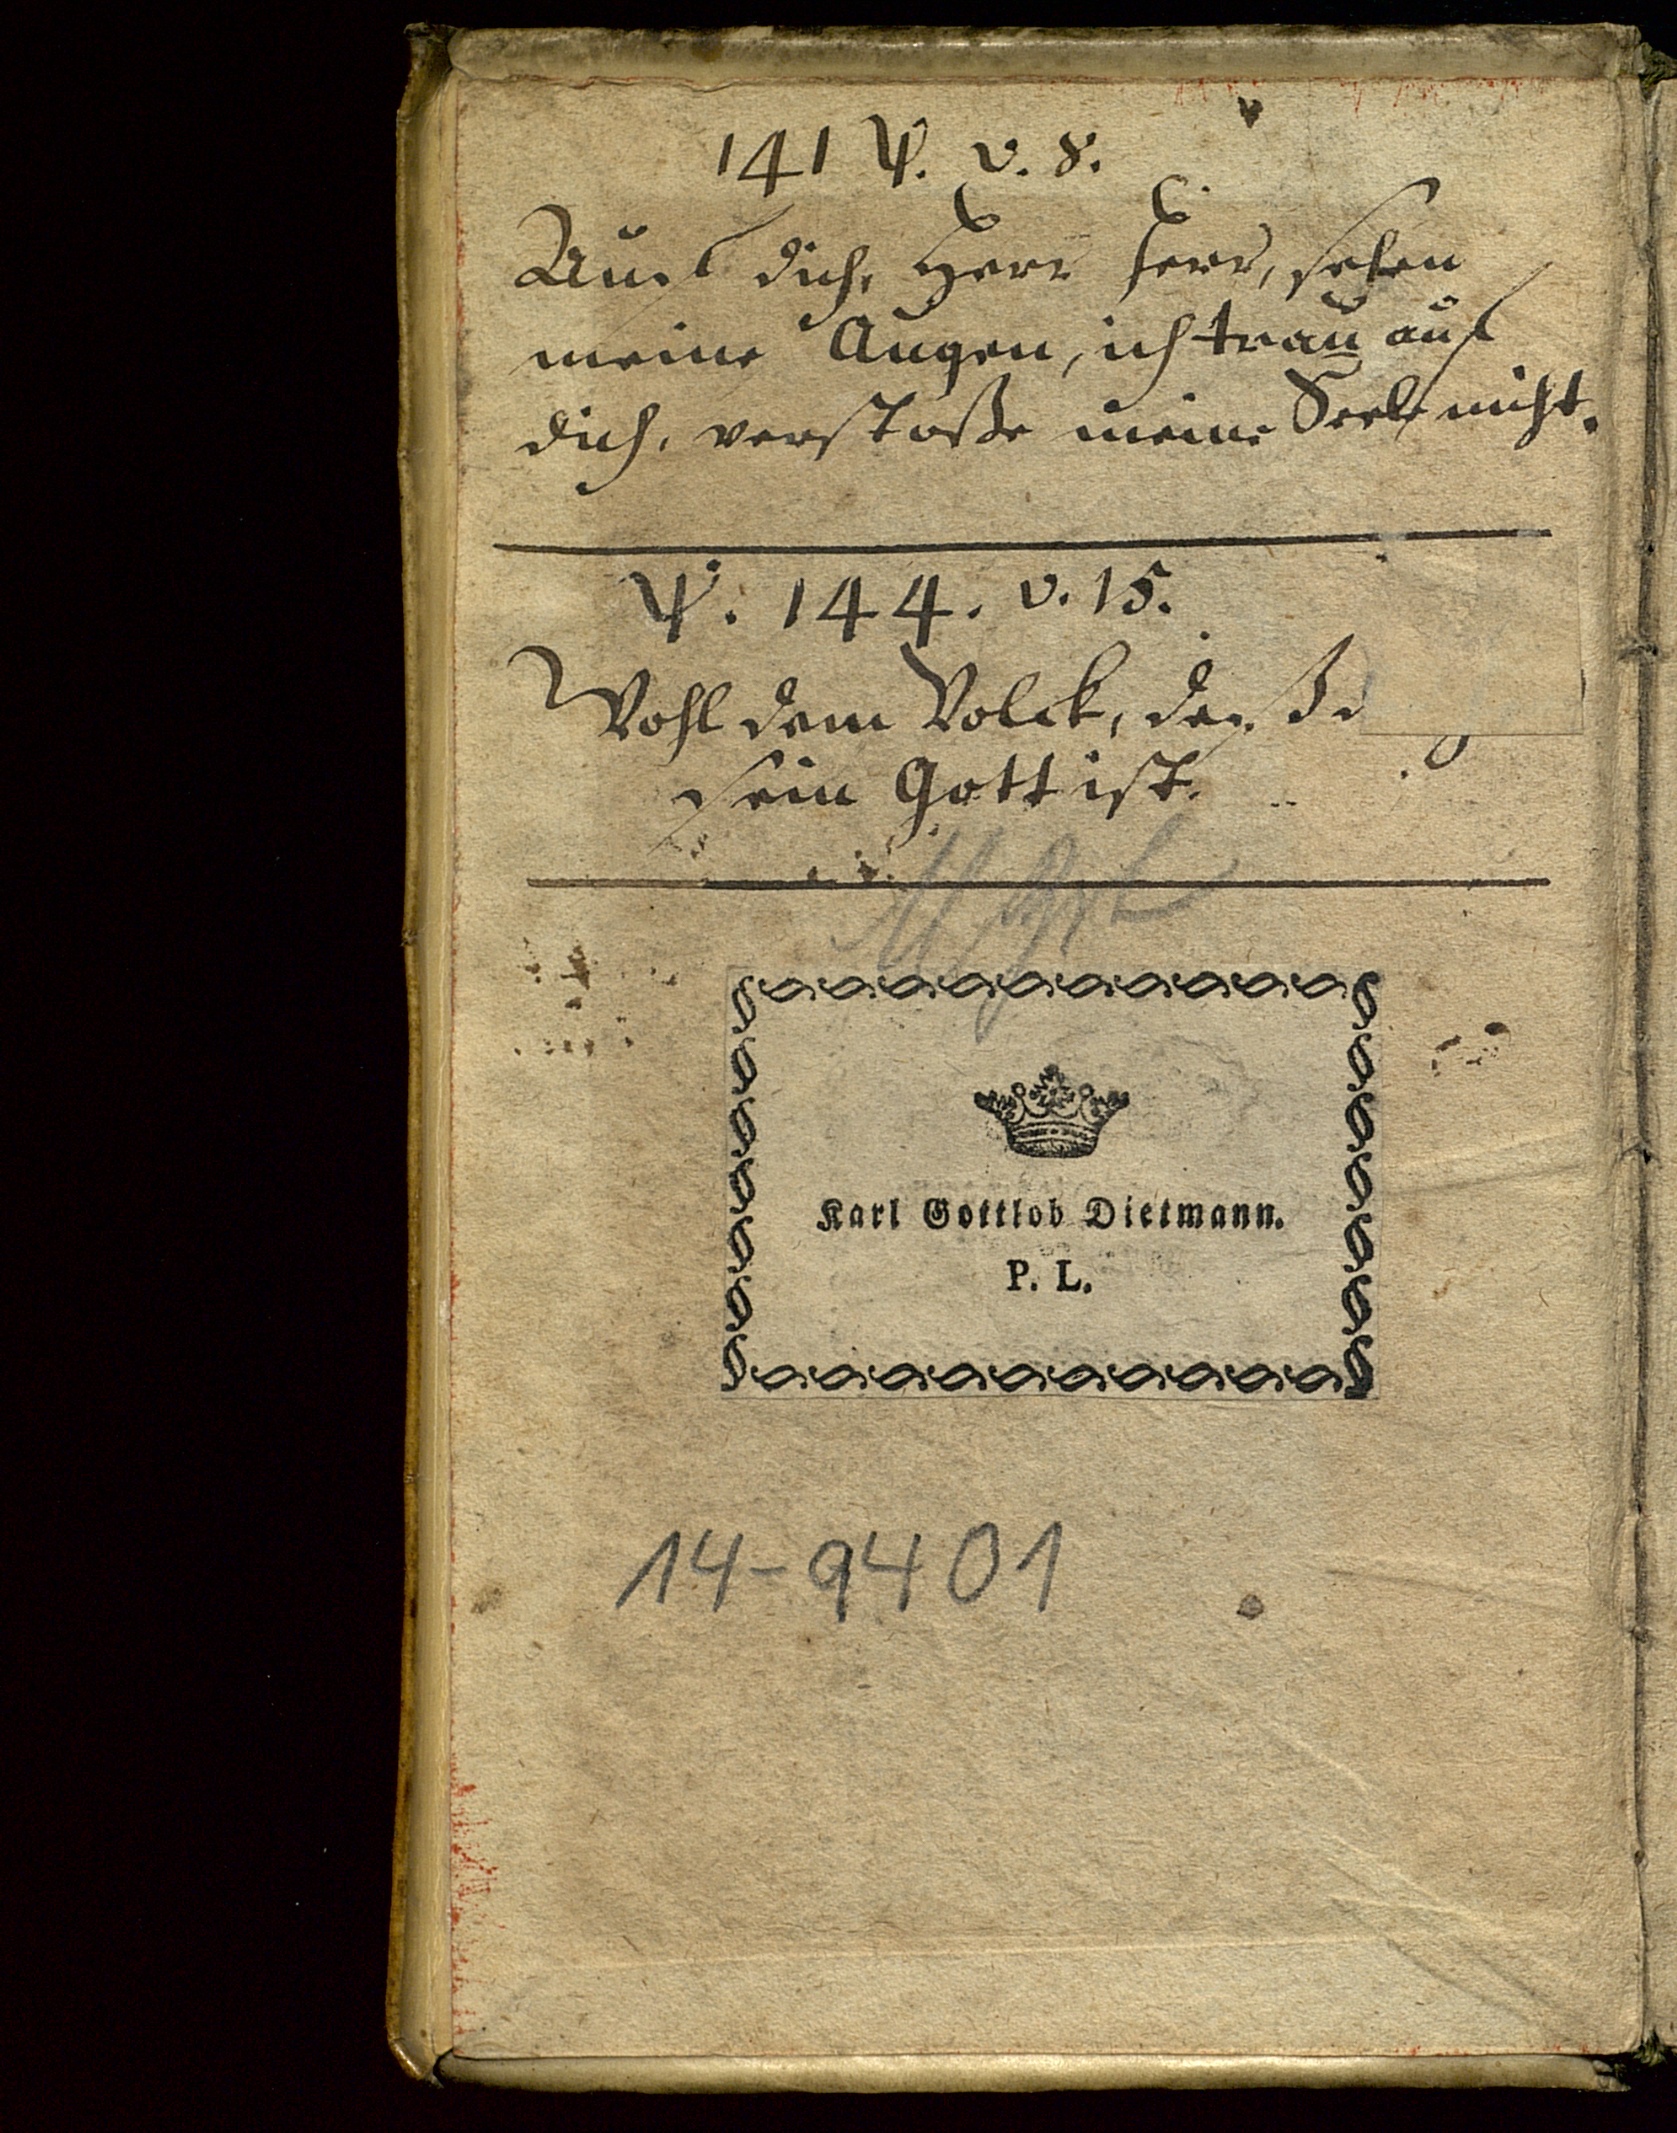 141 Ψ. v. 8.
Auf dich, Herr Herr, sehen
meine Augen, ich trau auf
dich, verstoße meine Seele nicht.
Ψ. 144. v. 15.
Wohl dem Volck, deß d
sein Gott ist.
Karl Gottlob Dietmann.
P. L.
14-9401